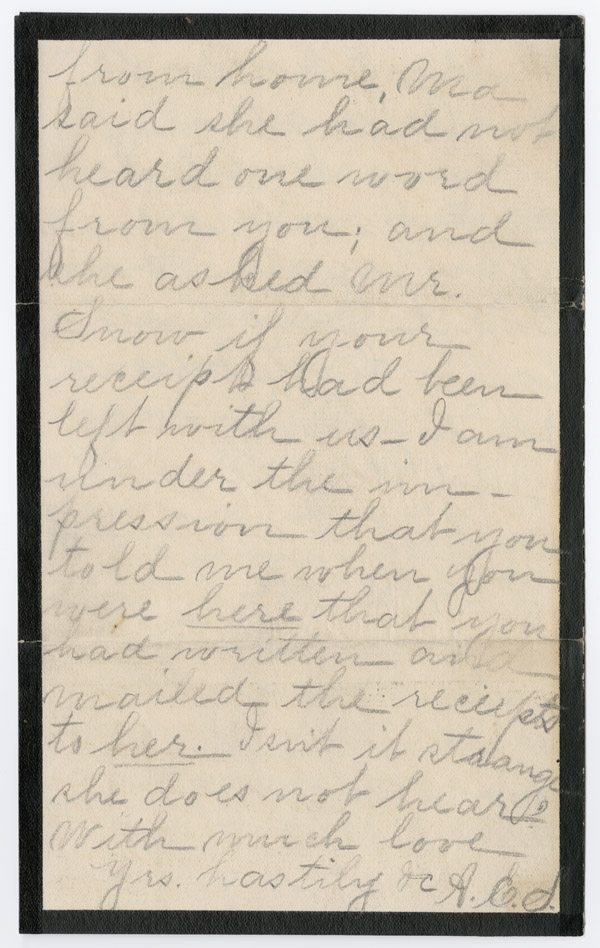 from home, Ma
said she had not
heard one word
from you; and
she asked Mr.
Snow if your
receipts had been
left with us - I am
under the im-
pression that you
told me when you
were here that you
had written and
mailed the receipts
to her. Isn't it strange
she does not hear?
With much love
Yrs. hastily &c A. E. S.